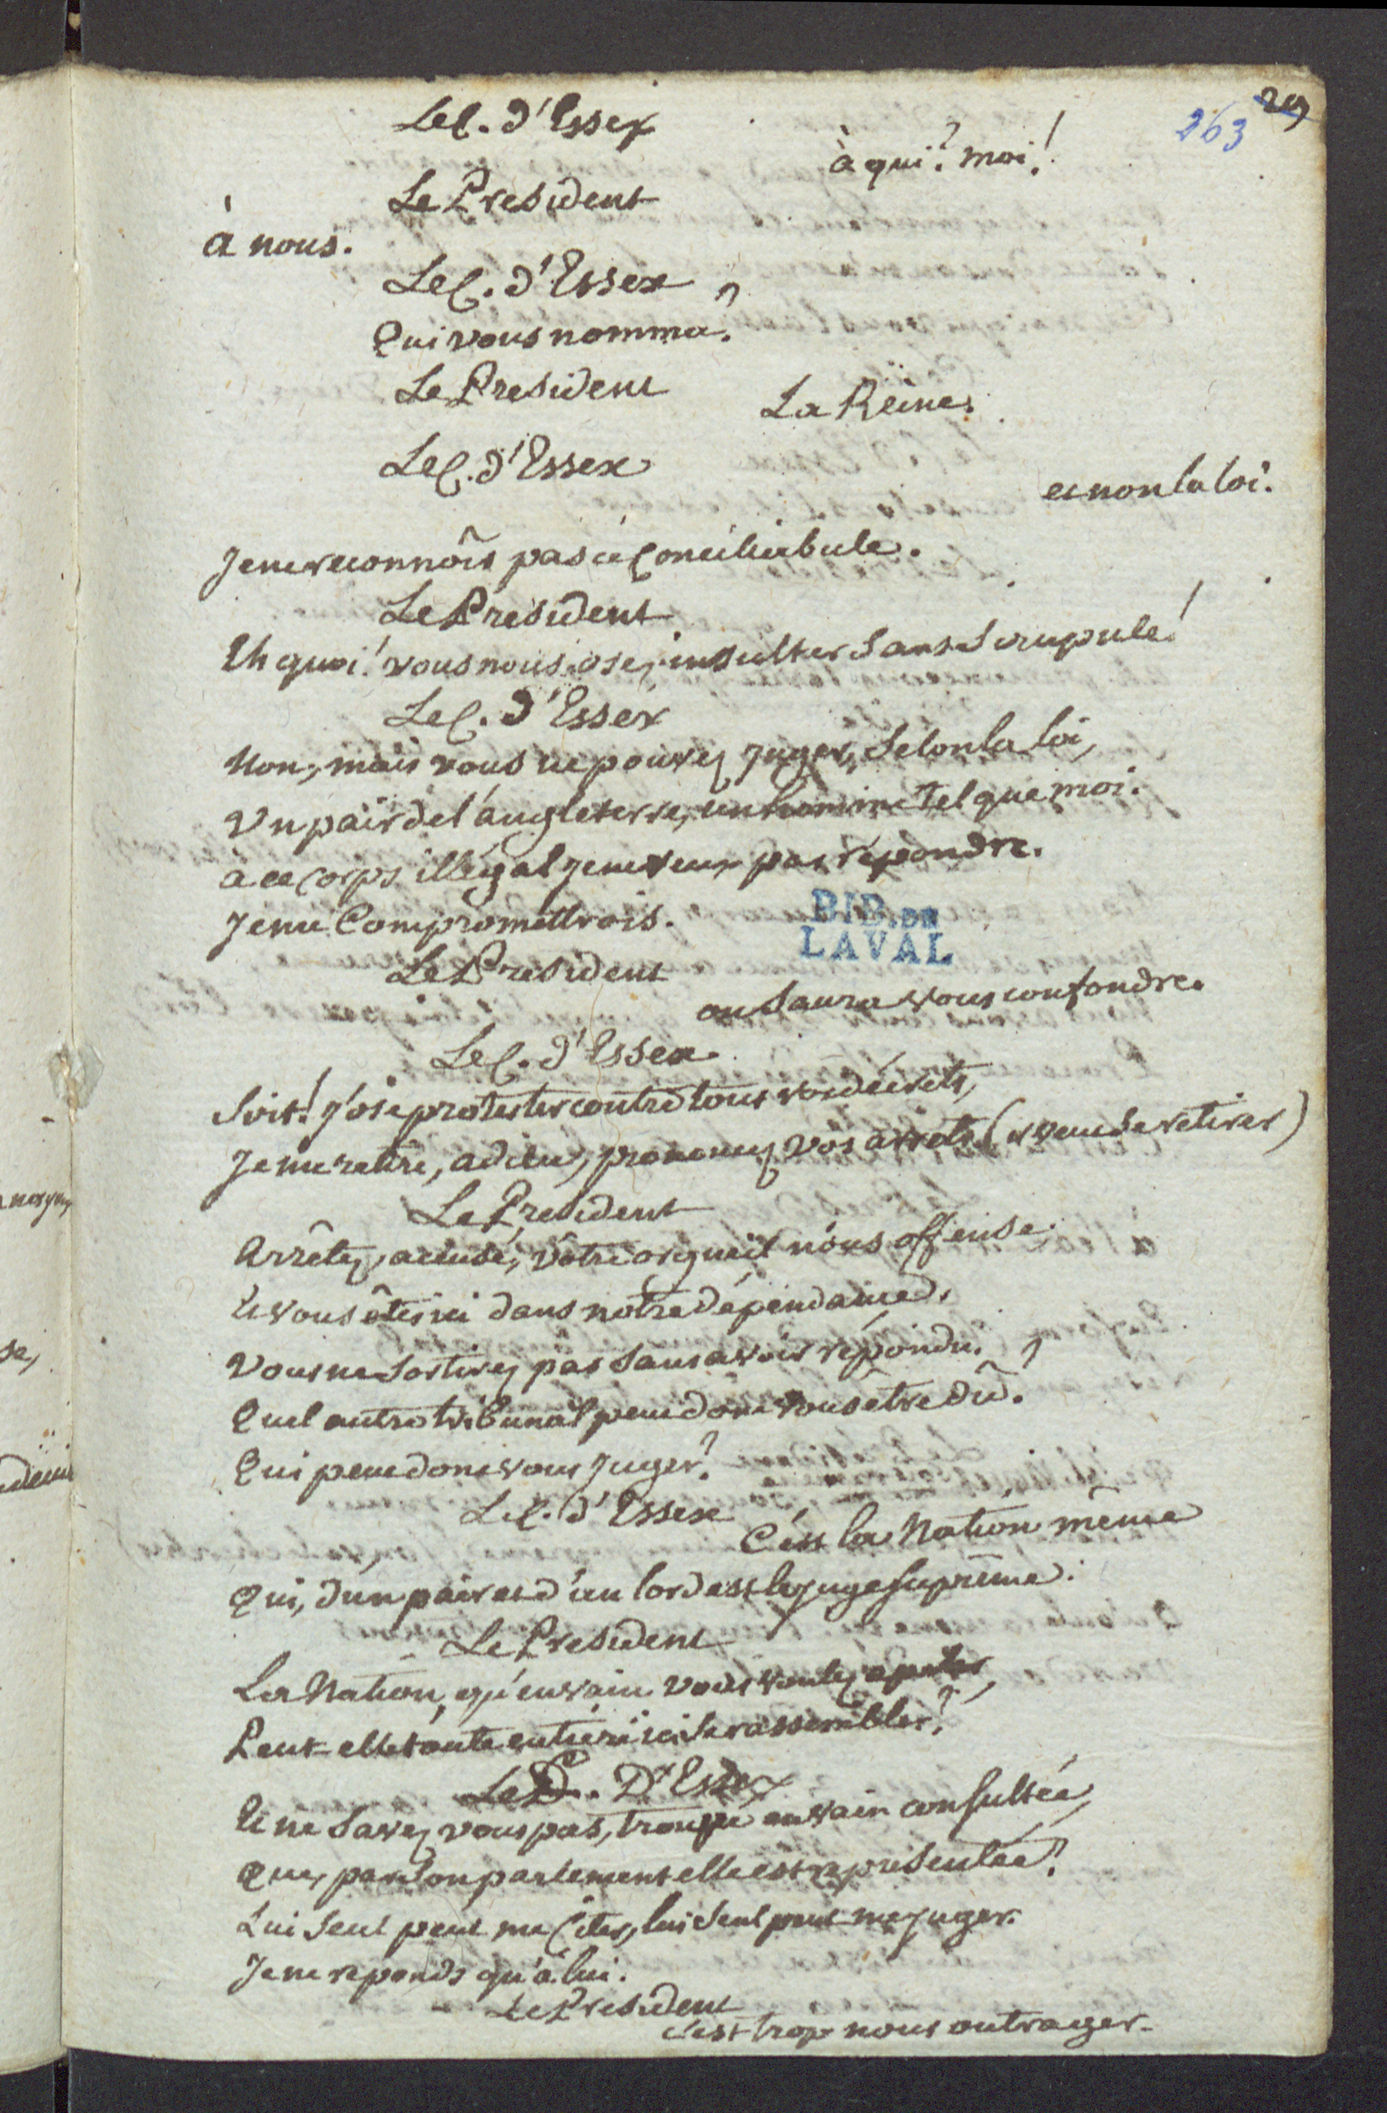 29
263
Le C. d'Essex
à qui? moi!
Le President
à nous.
Le C. d'Essex
Qui vous nomma?
Le President
La Reine.
Le C. d'Essex
et non la loi.
Je ne reconnôis pas ce Conciliabule.
Le President
Eh quoi! vous nous osez insulter sans scrupule!
Le C. d'Essex
Non, mais vous ne pouvez juger, selon la loi,
Un pair de l'angleterre, un homme tel que moi.
à ce corps illégal je ne veux pas répondre.
Je me Compromettrois.
BIB. DE
LAVAL
Le President
on saura vous confondre.
Le C. d'Essex
Soit! j'ose protester contre tous vos décrets,
Je me retire, adieu, prononcez vos arrets. (il veut se retirer)
Le President
Arrêtez, accusé; vôtre orgueil nous offense.
Et vous êtes ici dans nôtre dépendance.
Vous ne sortirez pas sans avoir répondu.
Quel autre tribunal peut donc vous être dû?
Qui peut donc vous juger?
Le C. d'Essex
C'est la Nation même
Qui, d'un pair et d'un lord est le juge suprême.
Le President
La Nation, qu'en vain vous voulez apeler,
Peut-elle toute entiere ici se rassembler?
Le C. D'Essex
Et ne savez vous pas, troupe en vain consultée,
Que, par son parlement elle est représentée?
Lui seul peut me Citer, lui seul peut me juger.
Je ne reponds qu'à lui.
Le President
c'est trop nous outrager.